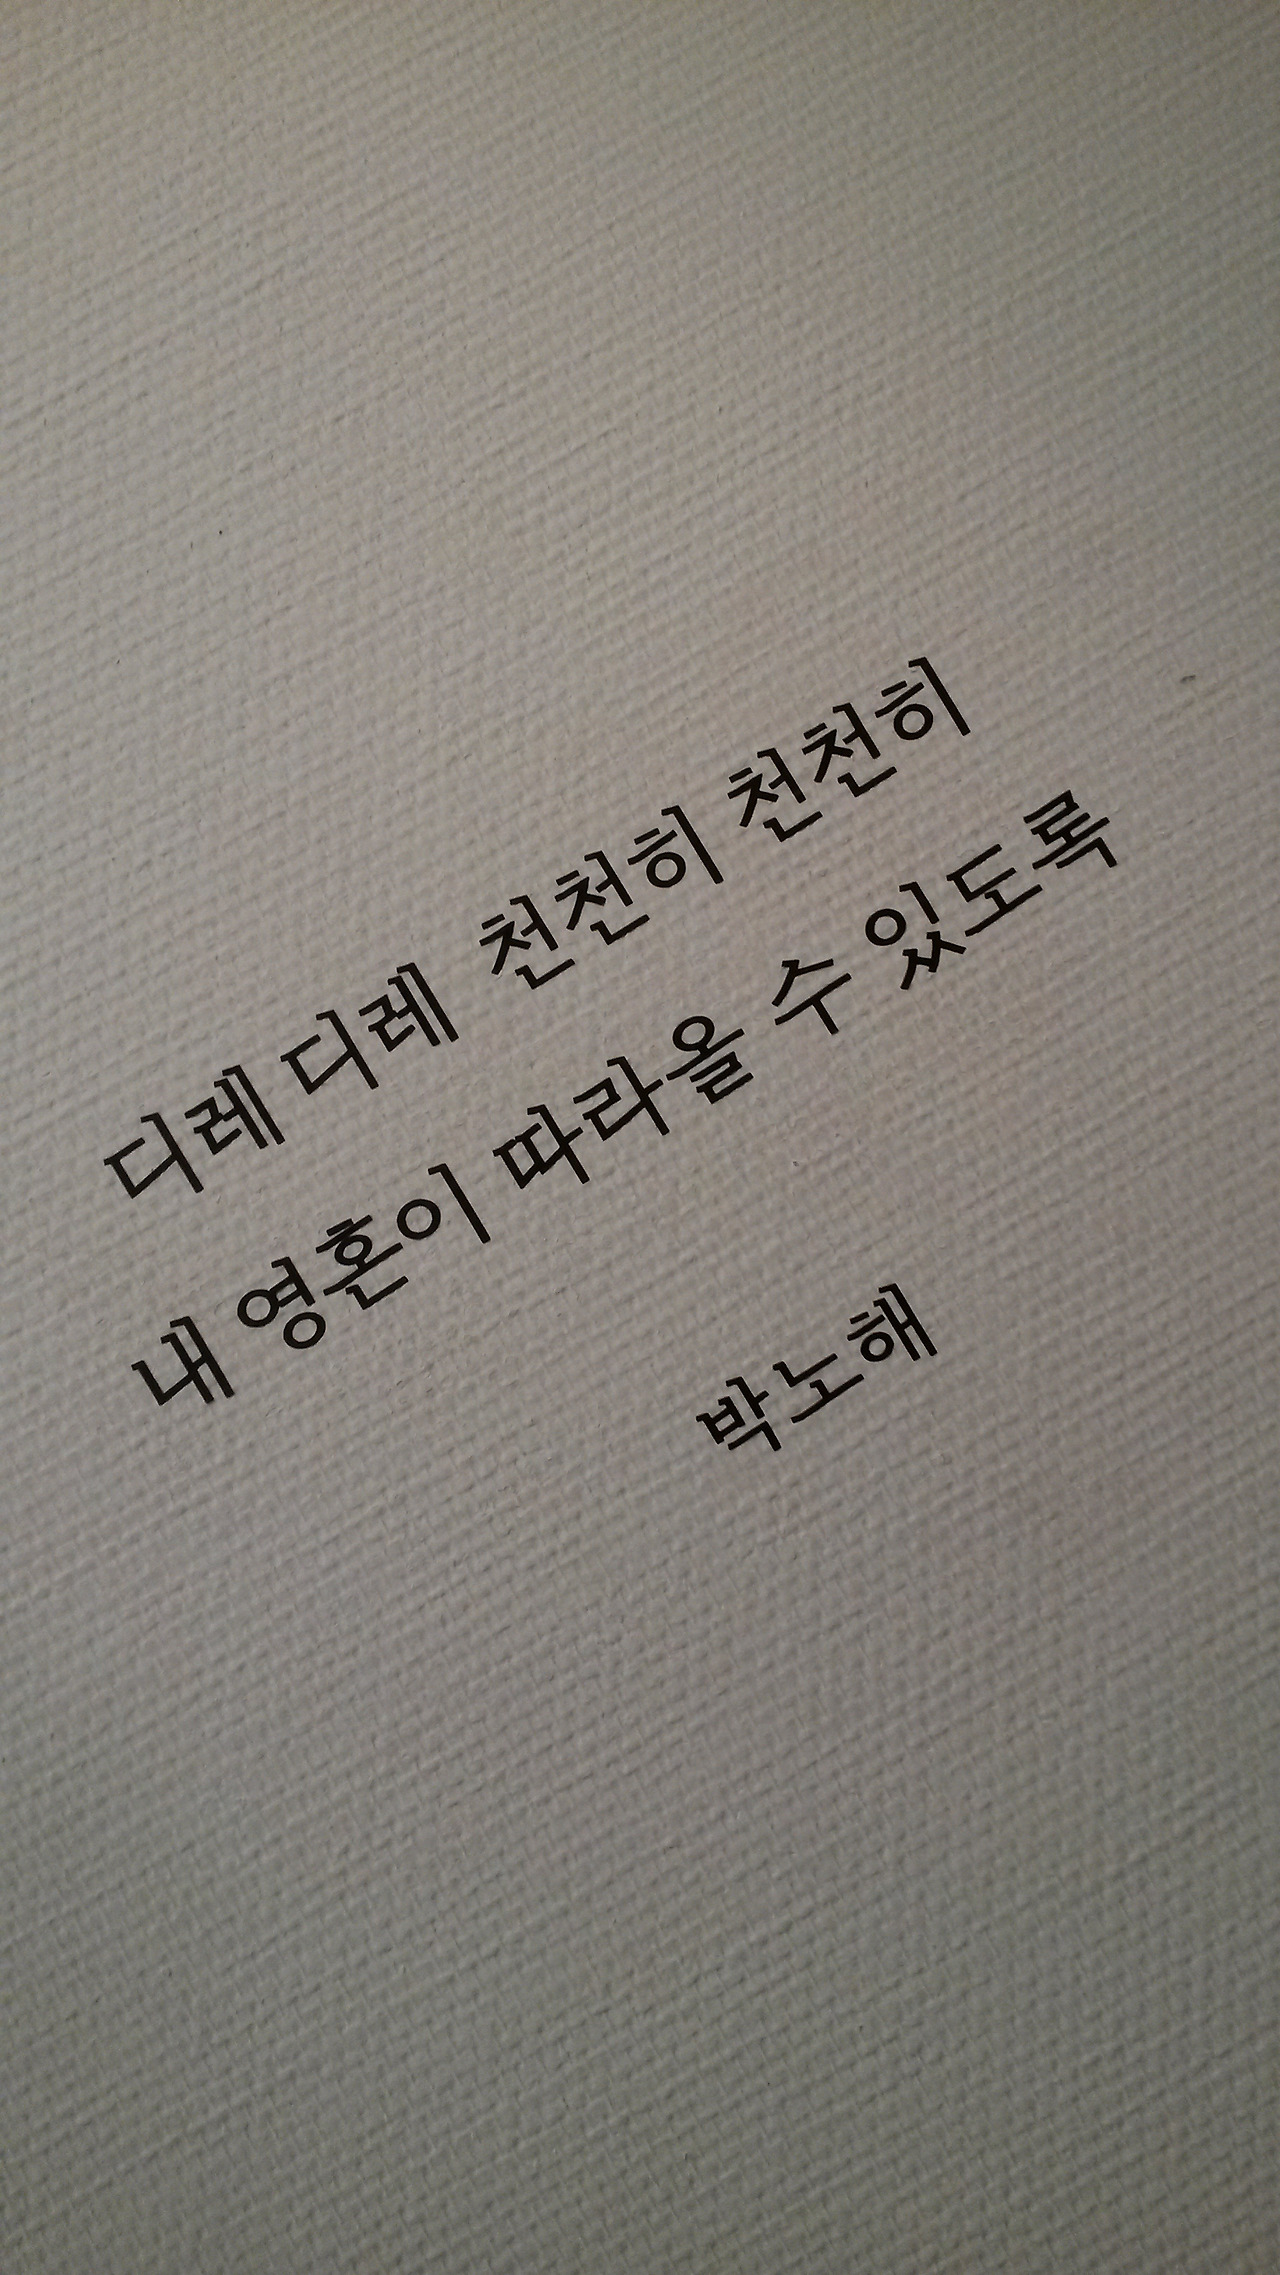 디레 디레 천천히 천천히
내 영혼이 따라올 수 있도록
박노해